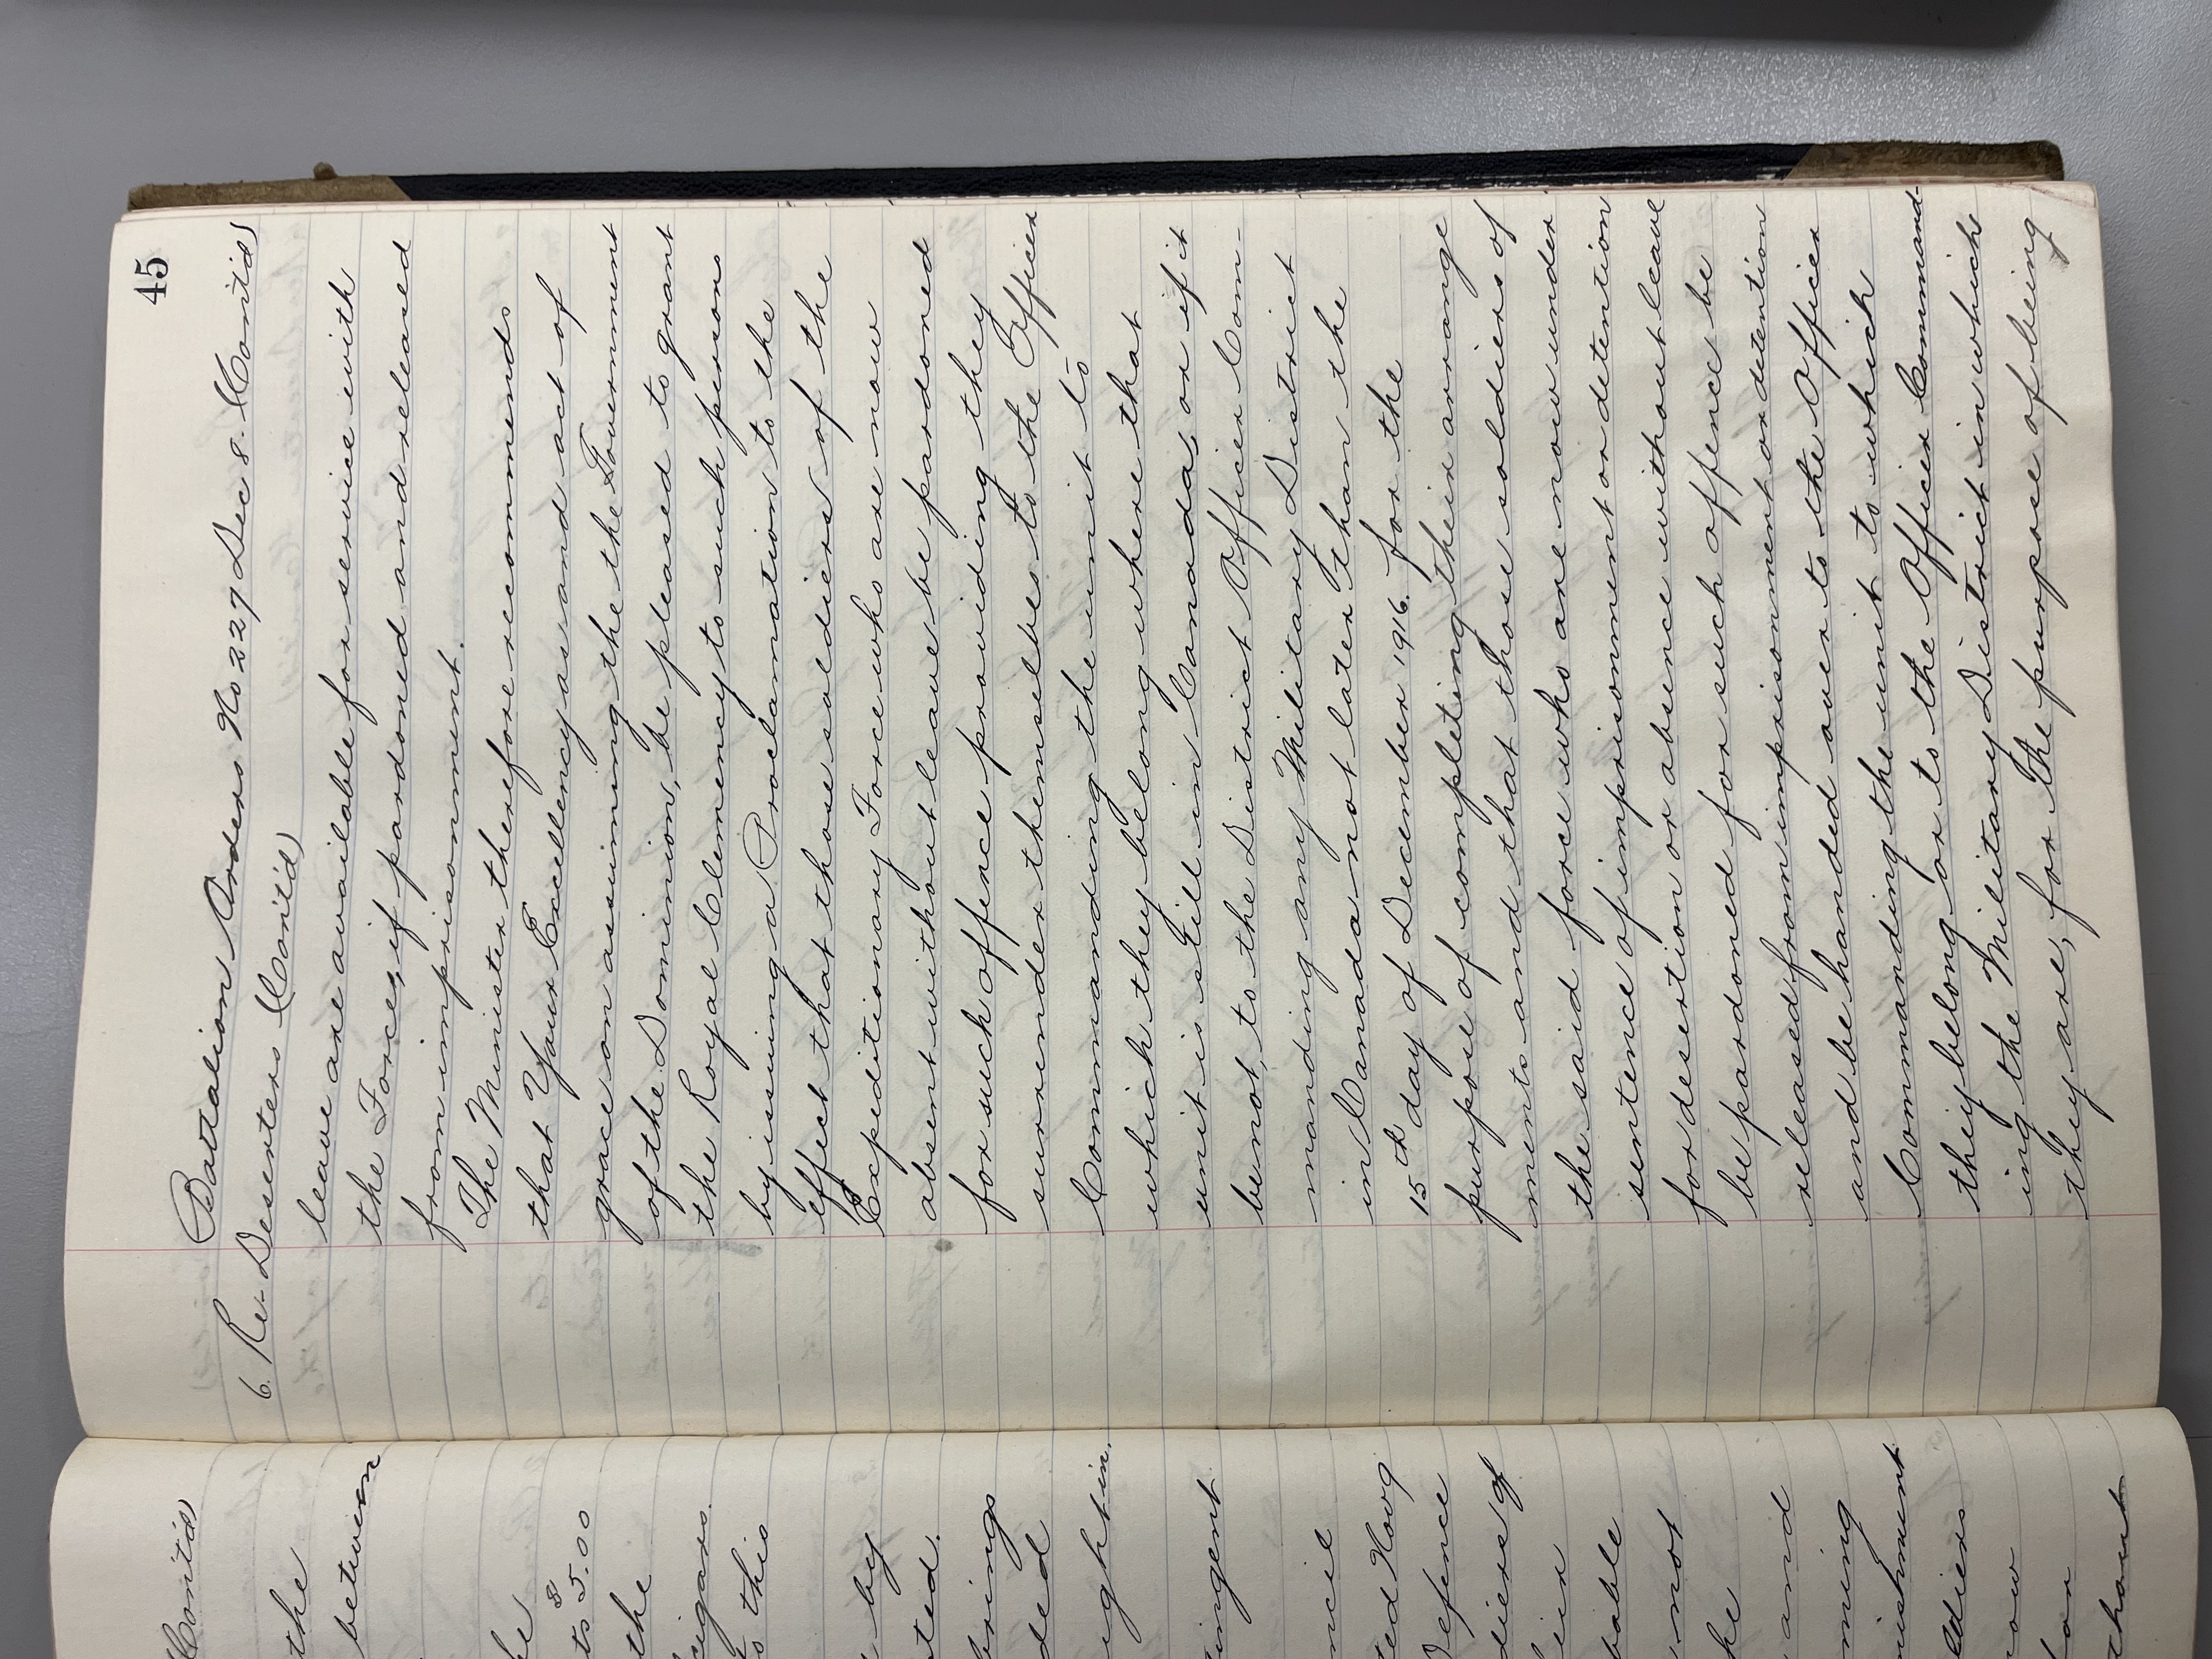 Contd
the
between
he
8
ts 5.00
the
cigars.
to this
by
ted.
brings
ded
ightin.
tingent
ncil
ted Novg
Defence
diers of
lier
bable
not
he
and
ming
nishment
ldiers
now
for
thout
45
Battalion Orders No 227 Dec 8. (Contd)
6. Re- Deserters (Cont'd)
leave are available for service with
the Forces, if pardoned and released
from imprisonment.
The Minister therefore recommends
that Your Excellency as and act of
grace on assuming the the Government
of the Dominion, be pleased to grant
the Royal Clemency to such persons
by issuing a Proclamation to the
effect that those soldiers of the
Expeditionary Force who are now
absent without leave be pardoned
for such offence providing they
surrender themselves to the Officer
Commanding the unit to
which they belong where that
unit is still in Canada, or if it
be not, to the District Officer Com-
manding any Military District
in Canada not later than the
15th day of December 1916. for the
purpose of completing their arrange
ments and that those soldiers of
the said force who are now under
sentence of imprisonment or detention
for desertion or absence without leave
be pardoned for such offence be
released from imprisonment or detention
and be handed over to the Officer
Commanding the unit to which
they belong or to the Officer Command-
ing the Military District in which
they are, for the purpose of being